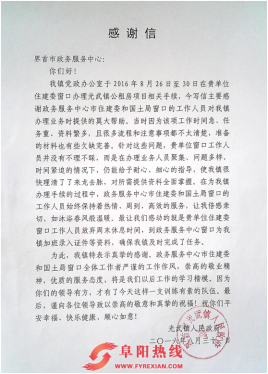 感谢信
界首市政务服务中心：
你们好！
我镇党政办公室于2016年8月26日至30日在贵单位
住建委窗口办理光武镇公租房项目相关手续，今写信主要感
谢政务服务中心市住建委和国土局窗口的工作人员对我镇
办理业务时提供的莫大帮助。当时因为该项工作时间急、任
务重、资料繁多，且很多流程和注意事项都不太清楚，准备
的材料也有些欠缺完善。针对这些问题，贵单位窗口工作人
员并没有不理不睬，而是在办理业务人员聚集、问题多样，
时间紧迫的情况下，仍能给予耐心、细心的指导，使我镇
很快理清了来龙去脉，对所需提供资料全面掌握。在为我镇
办理手续的过程中，政务服务中心市住建委和国土局窗口的
工作人员始终保持着热情、周到、高效的服务，让我倍感亲
切，如沐浴春风般温暖。最让我们感动的就是贵单位住建委
窗口工作人员放弃周末休息时间，到政务服务中心窗口为我
镇加班录入证件等资料，确保我镇及时完成了任务。
为此，我镇特表示真挚的感谢。政务服务中心市住建委
和国土局窗口全体工作者严谨的工作作风，崇高的敬业精
神，优质的服务态度，将是我们以后工作的学习楷模。因为
你们的领导有方，才有了今天这样一支训练有素的队伍。最
后，谨向各位领导致以崇高的敬意和真挚的祝福！祝你们平
安幸福，快乐健康，顺心如意！
光武镇人民政府
二〇一六年八月三十一日
阜阳热线
WWW.FYREXIAN.COM